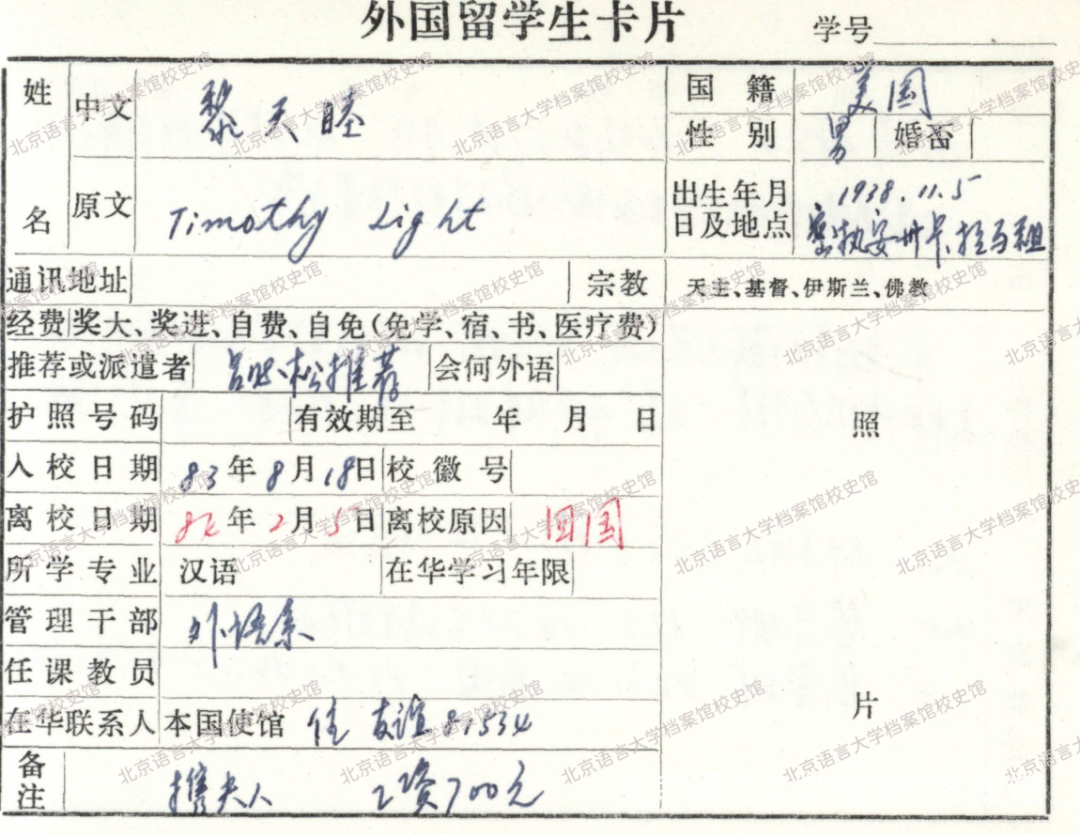 外国留学生卡片 学号
姓名 中文 黎天睦 国籍 美国
性别 男 婚否
原文 Timothy Light 出生年月日及地点 1938.11.5
密执安州卡拉马祖
通讯地址 宗教 天主、基督、伊斯兰、佛教
经费 奖大、奖进、自费、自免(免学、宿、书、医疗费)
推荐或派遣者 推荐 会何外语
护照号码 有效期至 年 月 日 照
入校日期 83年8月18日 校徽号
离校日期 年2月5日 离校原因 回国
所学专业 汉语 在华学习年限
管理干部 外语系
任课教员
在华联系人 本国使馆 住 友谊 81534 片
备注 携夫人 工资700元
北京语言大学档案馆校史馆